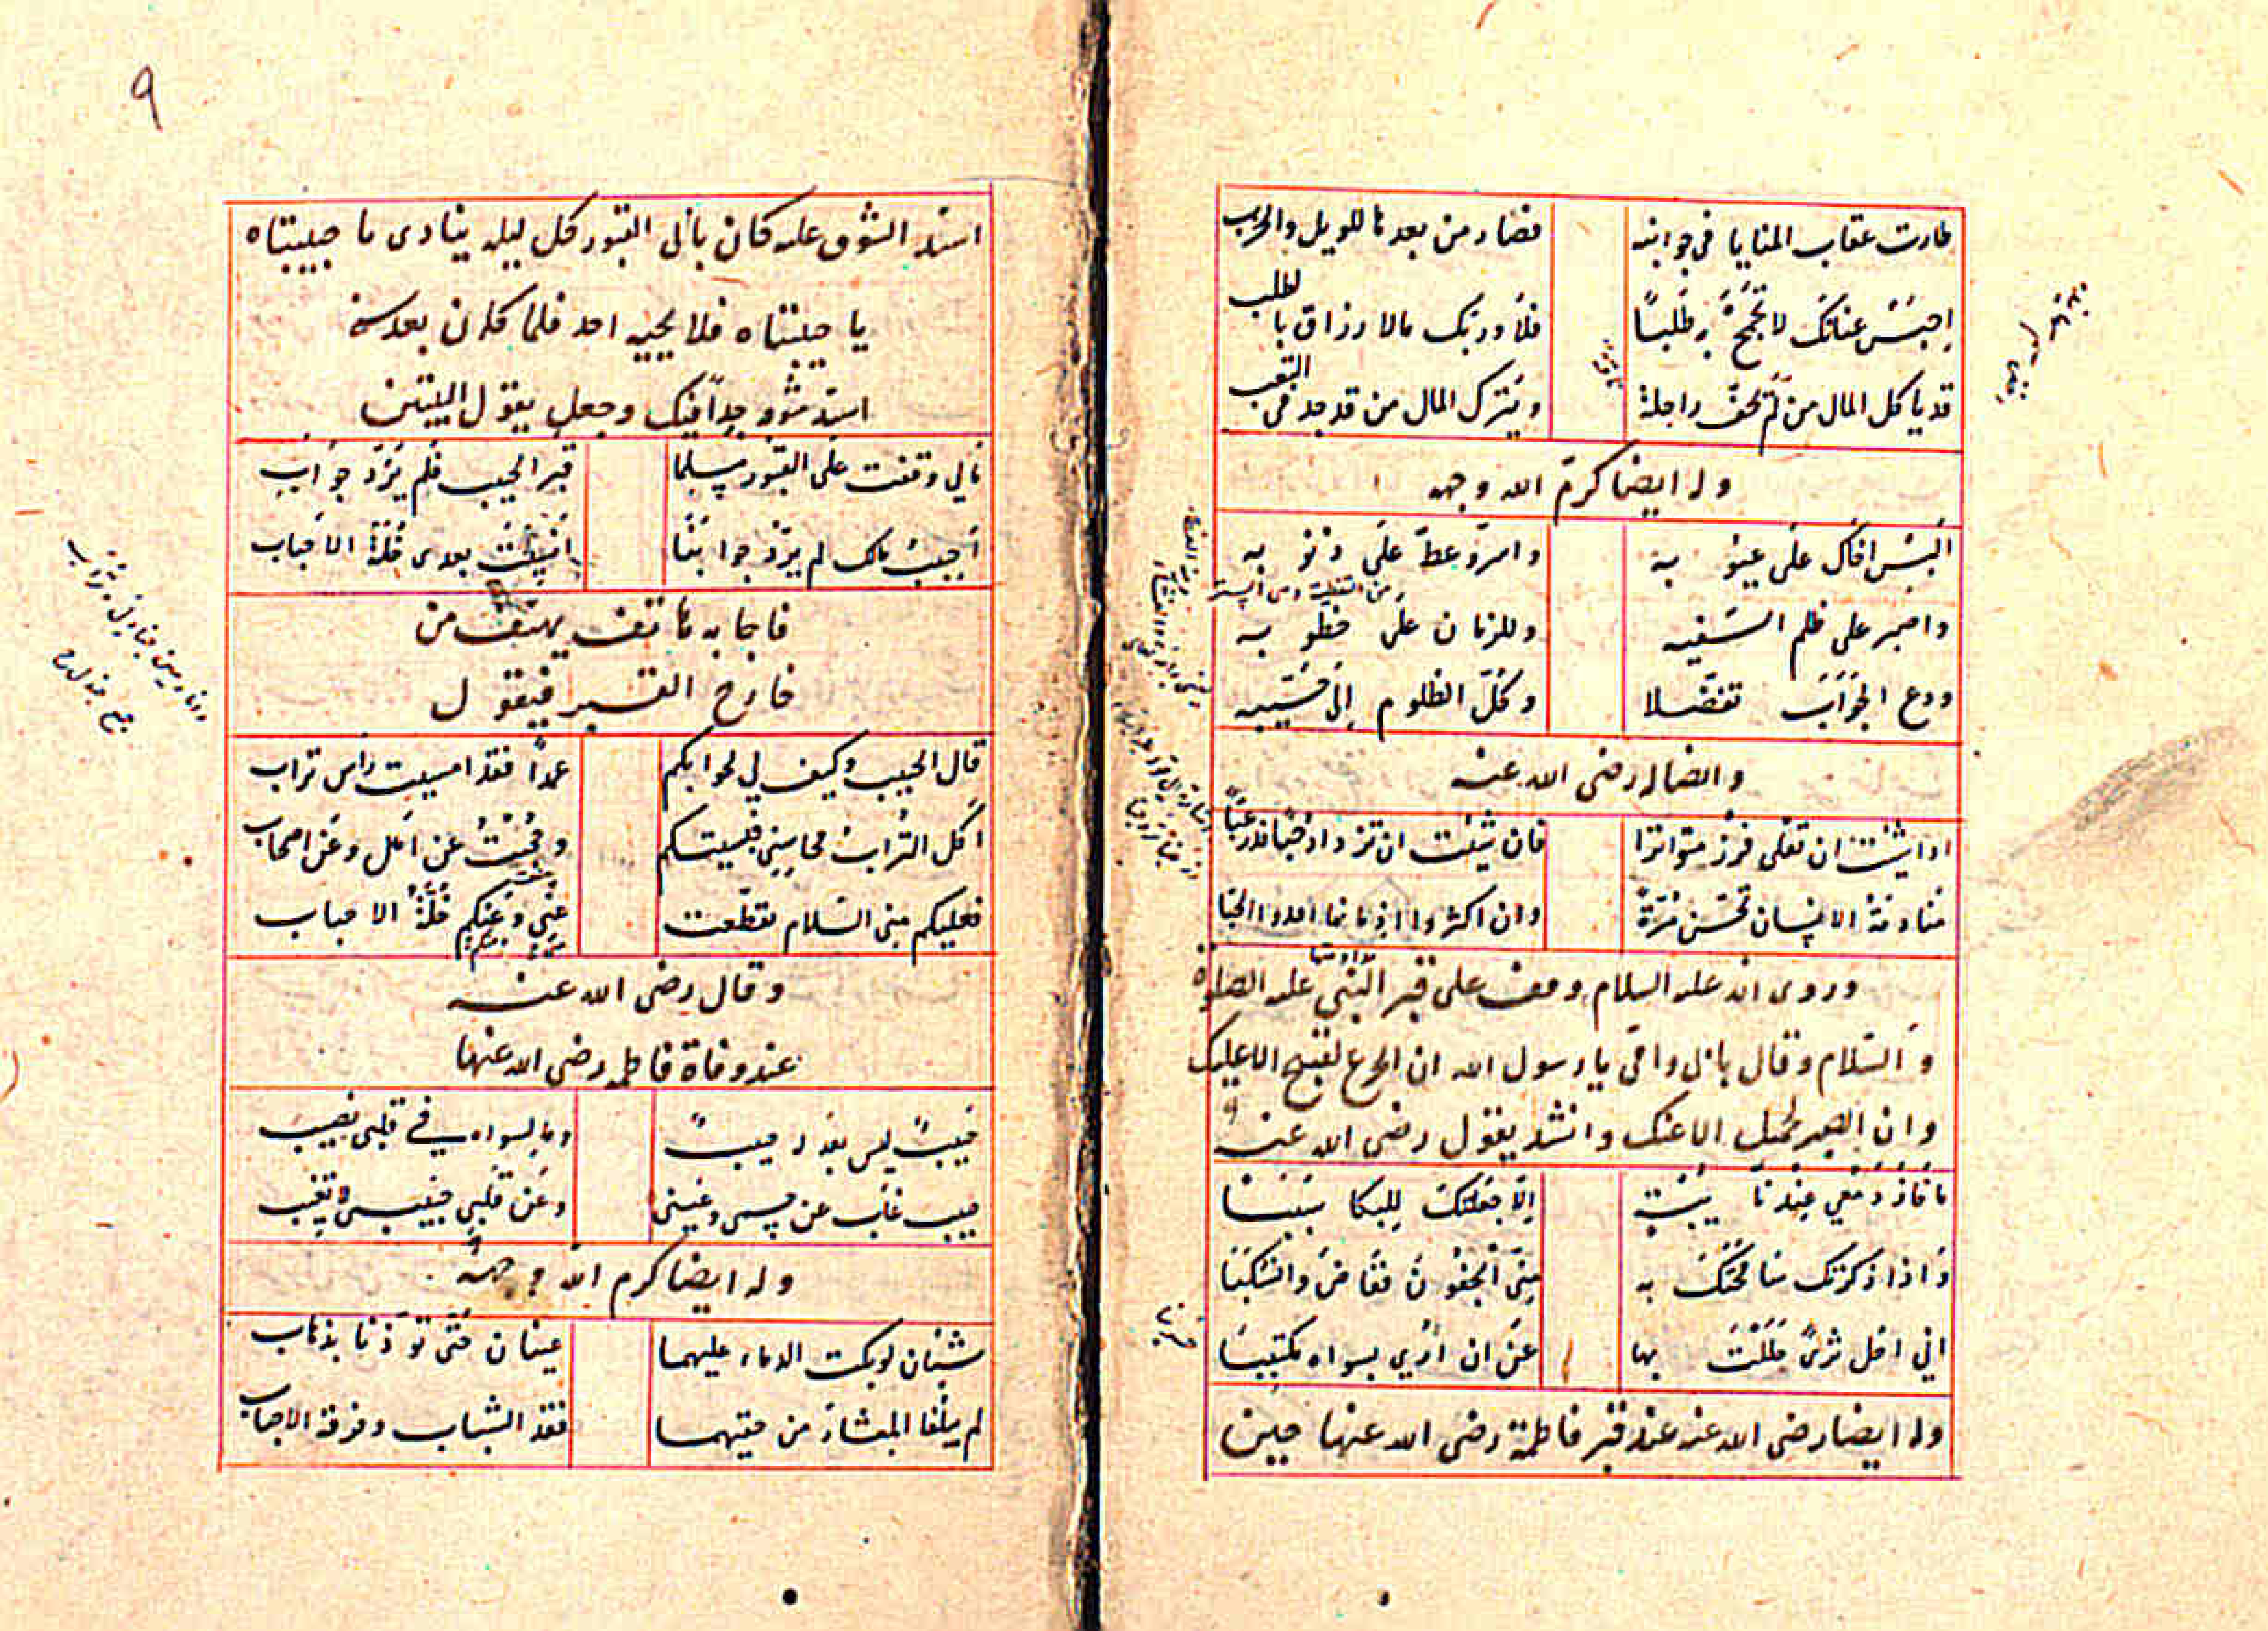 طارت عقاب المنايا في جوانبه فصار من بعدها للويل والحرب
احبس عنانك لا تجمح به طلبا فلا وربك ما الارزاق بالطلب
قد ياكل المال من لم يحف راحلة ويترك المال من قد جد في التعب
وله ايضا كرم الله وجهه
البس اخاك على عيوبه واستر وغط على ذنوبه
من التغطية وهي الستر
واصبر على ظلم السفيه وللزمان على خطوبه
ودع الجواب تفضلا وكل الظلوم الى حسيبه
وايضا له رضى الله عنه
اذا شئت ان تقلى فزر متواترا فان شئت ان تزداد حبا فزر غبا
منادمة الانسان تحسن مرة وان اكثروا ادمانها افسدوا الحبا
وروى انه عليه السلام وقف على قبر النبي عليه الصلوة
والسلام وقال بابى وامى يا رسول الله ان الجزع لقبيح الا عليك
وان الصبر لجميل الا عنك وانشد يقول رضى الله عنه
ما فاض دمعي عند نائبة الا جعلتك للبكا سببا
واذا ذكرتك سامحتك به مني الجفون ففاض وانسكبا
اني اجل ثرى حللت بها عن ان ارى بسواه مكتئبا
وله ايضا رضى الله عنه عند قبر فاطمة رضى الله عنها حين
٩
اشتد الشوق عليه كان ياتى القبور كل ليله ينادى يا حبيبتاه
يا حبيبتاه فلا يجيبه احد فلما كان بعد سنة
اشتد شوقه جدا فبكى وجعل يقول البيتين
مالي وقفت على القبور مسلما قبر الحبيب فلم يرد جواب
احبيب مالك لم يرد جوابنا انسيت بعدى خلة الاحباب
فاجابه هاتف يهتف من
خارج القبر فيقول
قال الحبيب وكيف لي لجوابكم عمدا فقد امسيت راس تراب
اكل التراب محاسني فنسيتكم وحجبت عن اهل وعن اصحاب
فعليكم منى السلام تقطعت عني وعنكم خلة الاحباب
وقال رضى الله عنه
عند وفاة فاطمه رضى الله عنها
حبيب ليس يعدله حبيب وما لسواه في قلبي نصيب
حبيب غاب عن جسمى وعيني وعن قلبي حبيبى لا يغيب
وله ايضا كرم الله وجهه
شيئان لو بكت الدماء عليهما عينان حتى تؤذنا بذهاب
لم يبلغا المعشار من حقيهما فقد الشباب وفرقة الاحباب